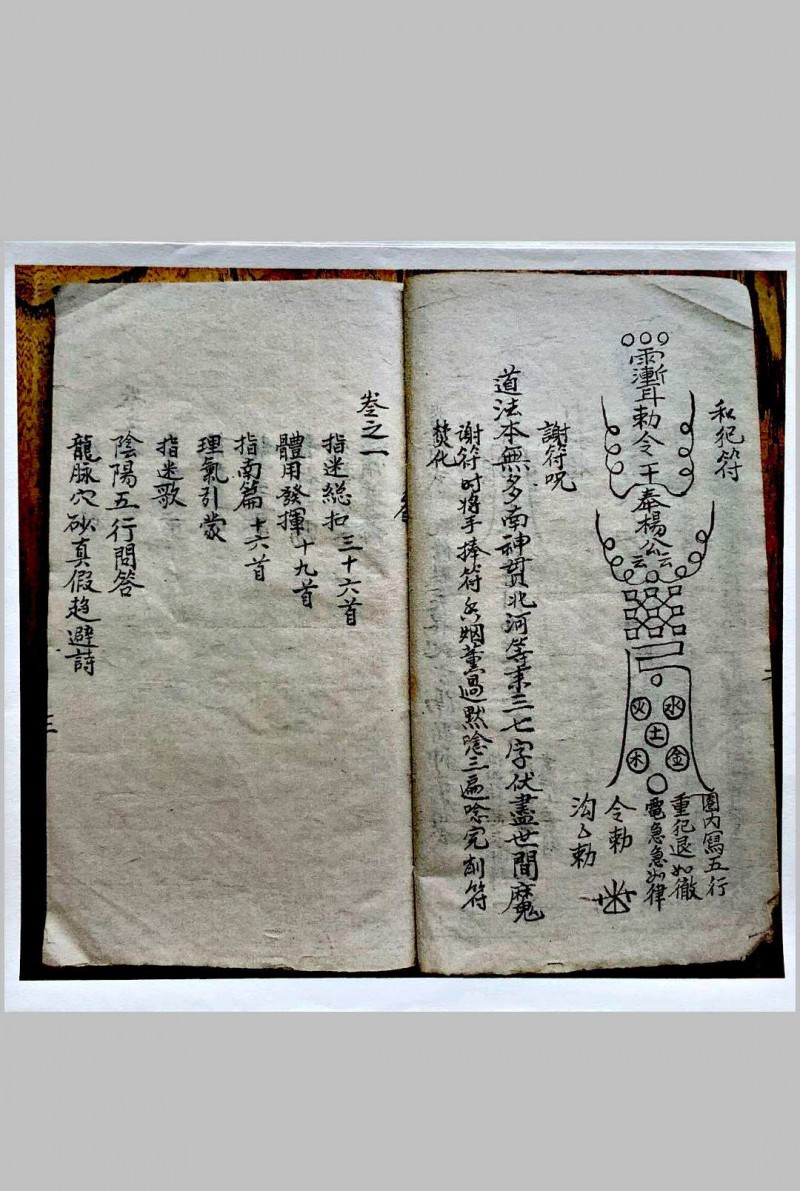 和犯符
雨漸耳勅令干奉楊公
云云
火水
土
木金
圈内寫五行
重犯退如徹
電急急如律
令勅
謝符呪
道法本無多南神貫北河等來三七字伏盡世間魔
謝符时将手捧符烟薰過黙唸三遍唸完剖符
焚化
卷之一
指迷総扣三十六首
體用發揮十九首
指南篇十六首
理氣引蒙
指迷歌
陰陽五行問答
龍脉穴砂真假趋避詩
三